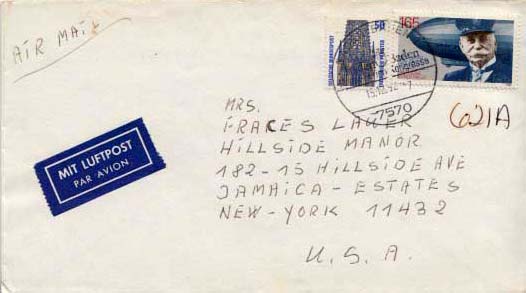 AIR MAIL
50
DEUTSCHE BUNDESPOST
165
Baden
15.12.92-7
7570
621A
MIT LUFTPOST
PAR AVION
MRS.
FRACES LAUER
HILLSIDE MANOR
182-15 HILLSIDE AVE
JAMAICA-ESTATES
NEW-YORK 11432
U.S.A.